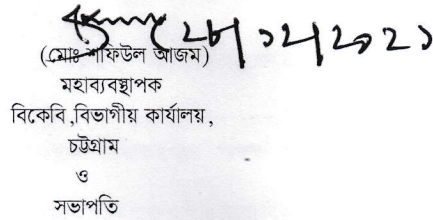 ২৮/১২/২০২১
(মোঃ শফিউল আজম)
মহাব্যবস্থাপক
বিকেবি ,বিভাগীয় কার্যালয়,
চট্টগ্রাম
ও
সভাপতি